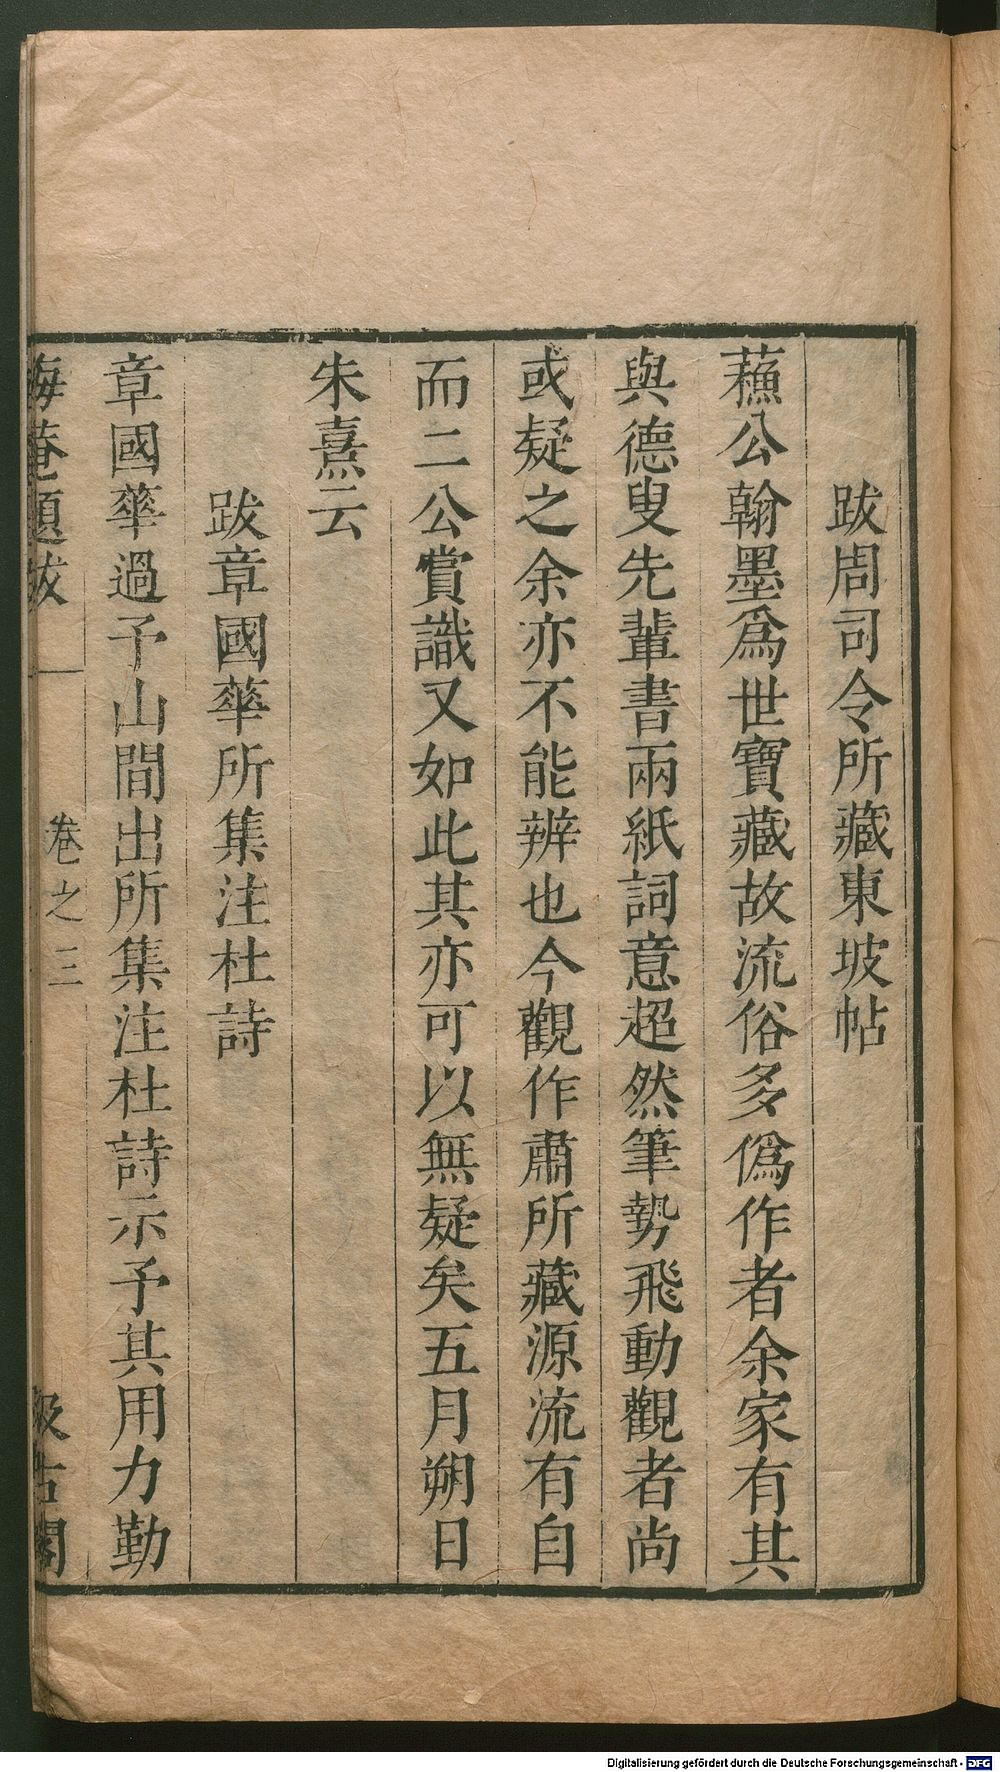 跋周司令所藏東坡帖
蘓公翰墨爲世寶藏故流俗多僞作者余家有其
與德叟先輩書兩紙詞意超然筆勢飛動觀者尚
或疑之余亦不能辨也今觀作肅所藏源流有自
而二公賞識又如此其亦可以無疑矣五月朔日
朱熹云
跋章國華所集注杜詩
章國華過予山間出所集注杜詩示予其用力勤
晦菴題跋 卷之三 汲古閣
Digitalisierung gefördert durch die Deutsche Forschungsgemeinschaft - DFG